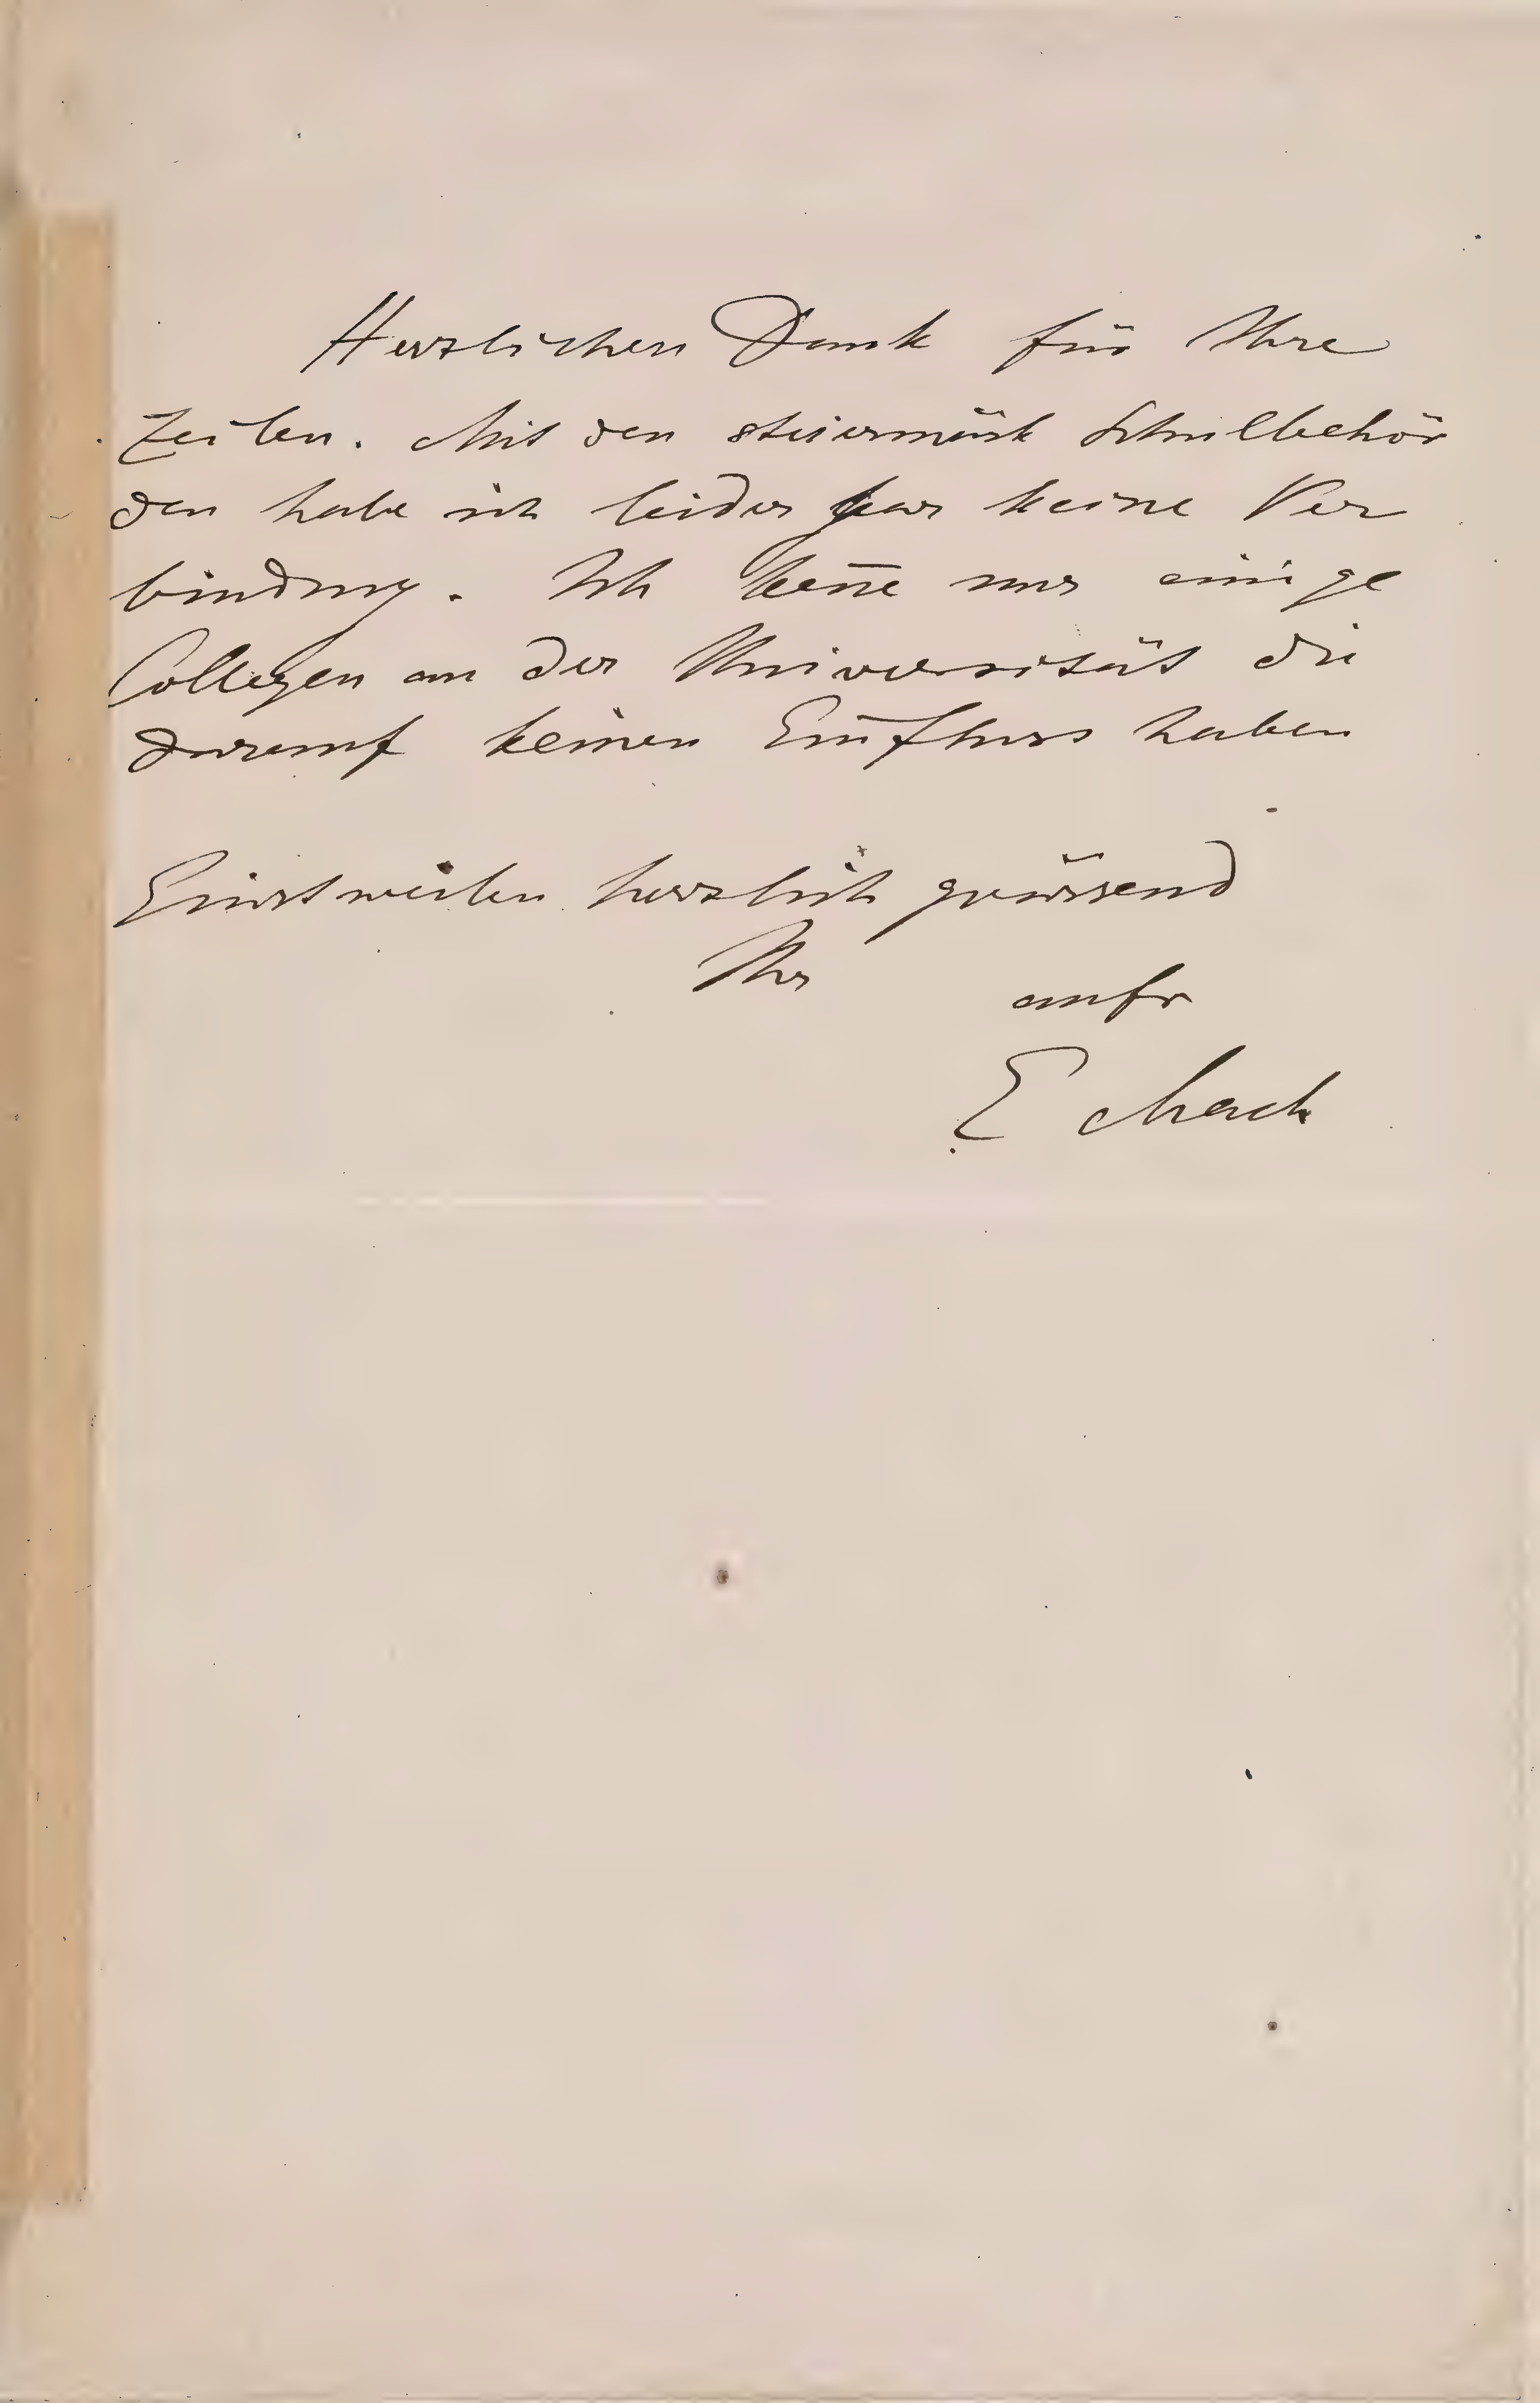 Herzlichen Dank für Ihre
Zeilen. Mit den steiermärk Schulbehör
den habe ich leider gar keine Ver
bindung. Ich keñe nur einige
Collegen an der Universität die
darauf keinen Einfluss haben
Einstweilen herzlich grüssend
Ihr aufr
E Mach